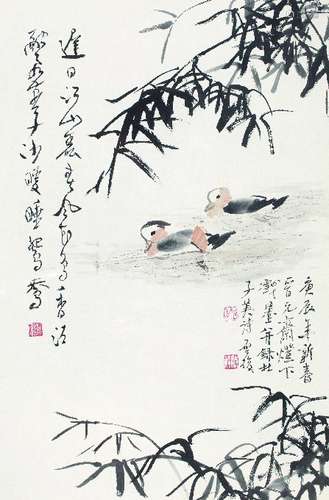 遲日江山麗春風花草香泥
融飛燕子沙暖睡鴛鴦
庚辰年新春
元齋燈下
戲墨并録杜
子美詩